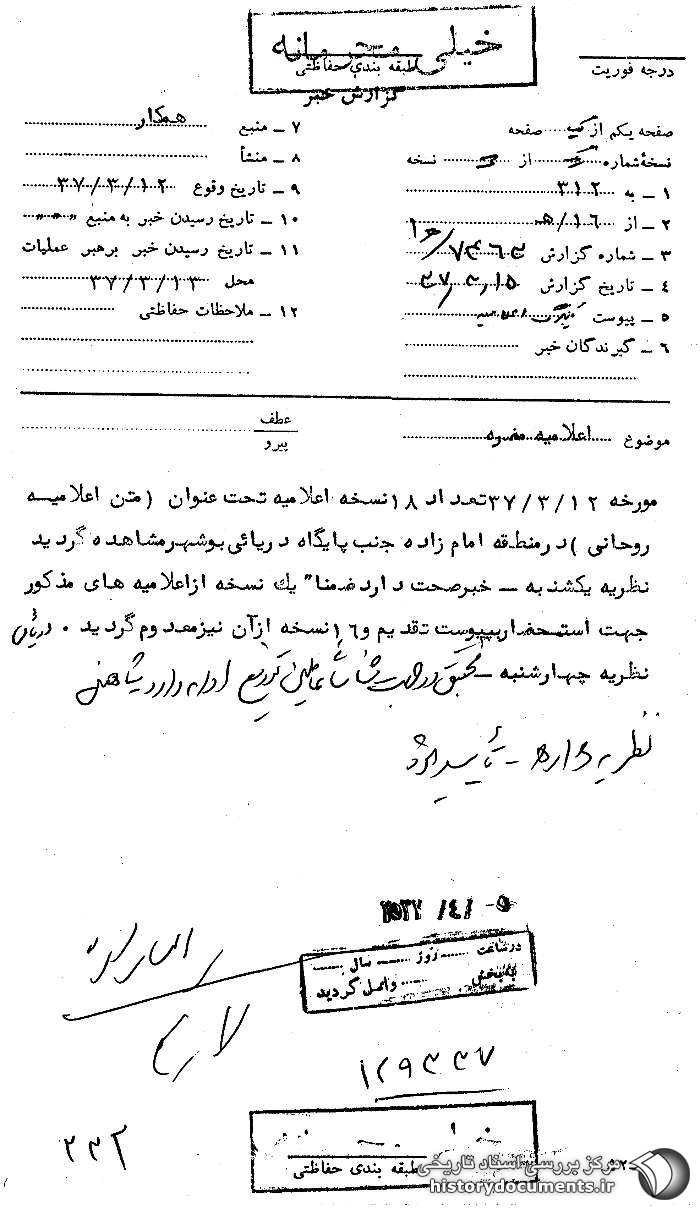 خیلی محرمانه
طبقه بندی حفاظتی
گزارش خبر
درجه فوریت
صفحه یکم از یک صفحه
نسخهٔ شماره از نسخه
۱ ـ به ۳۱۲
۲ ـ از ۱۶/هـ
۳ ـ شماره گزارش
۴ ـ تاریخ گزارش ۳۷/۳/۱۵
۵ ـ پیوست
۶ ـ گیرندگان خبر
۷ ـ منبع همکار
۸ ـ منشأ
۹ ـ تاریخ وقوع ۳۷/۳/۱۲
۱۰ ـ تاریخ رسیدن خبر به منبع " " "
۱۱ ـ تاریخ رسیدن خبر برهبر عملیات
محل ۳۷/۳/۱۳
۱۲ ـ ملاحظات حفاظتی
موضوع اعلامیه مضره
عطف
پیرو
مورخه ۳۷/۳/۱۲ تعداد ۱۸ نسخه اعلامیه تحت عنوان (متن اعلامیه
روحانی) در منطقه امام زاده جنب پایگاه دریائی بوشهر مشاهده گردید
نظریه یکشنبه ـ خبر صحت دارد ضمنا" یك نسخه از اعلامیه های مذکور
جهت استحضار بپیوست تقدیم و ۱۶ نسخه از آن نیز معدوم گردید .
نظریه چهارشنبه ـ تحقیق در جهت شناسائی عاملین توزیع ادامه دارد
نظریه
۲۵۳۷/۴/-۵
در ساعت روز سال
به بخش واصل گردید
۱۲۹۳۳۷
۲۳۲
طبقه بندی حفاظتی
مرکز بررسی اسناد تاریخی
historydocuments.ir